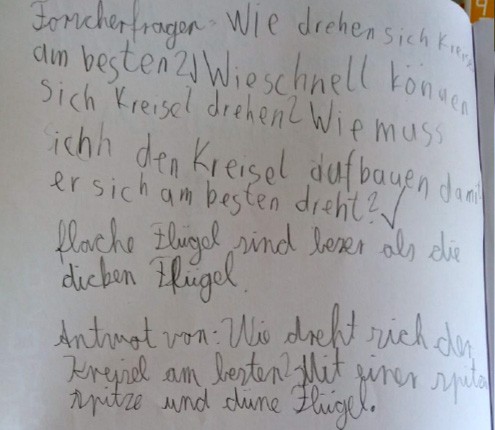 Forscherfragen: Wie drehen sich Kreisel
am besten? Wie schnell können
sich Kreisel drehen? Wie muss
ichh den Kreisel aufbauen damit
er sich am besten dreht? √
flache Flügel sind beser als die
dicken Flügel.
Antwort von: Wie dreht sich der
Kreisel am besten? Mit einer spiten
spitze und düne Flügel.